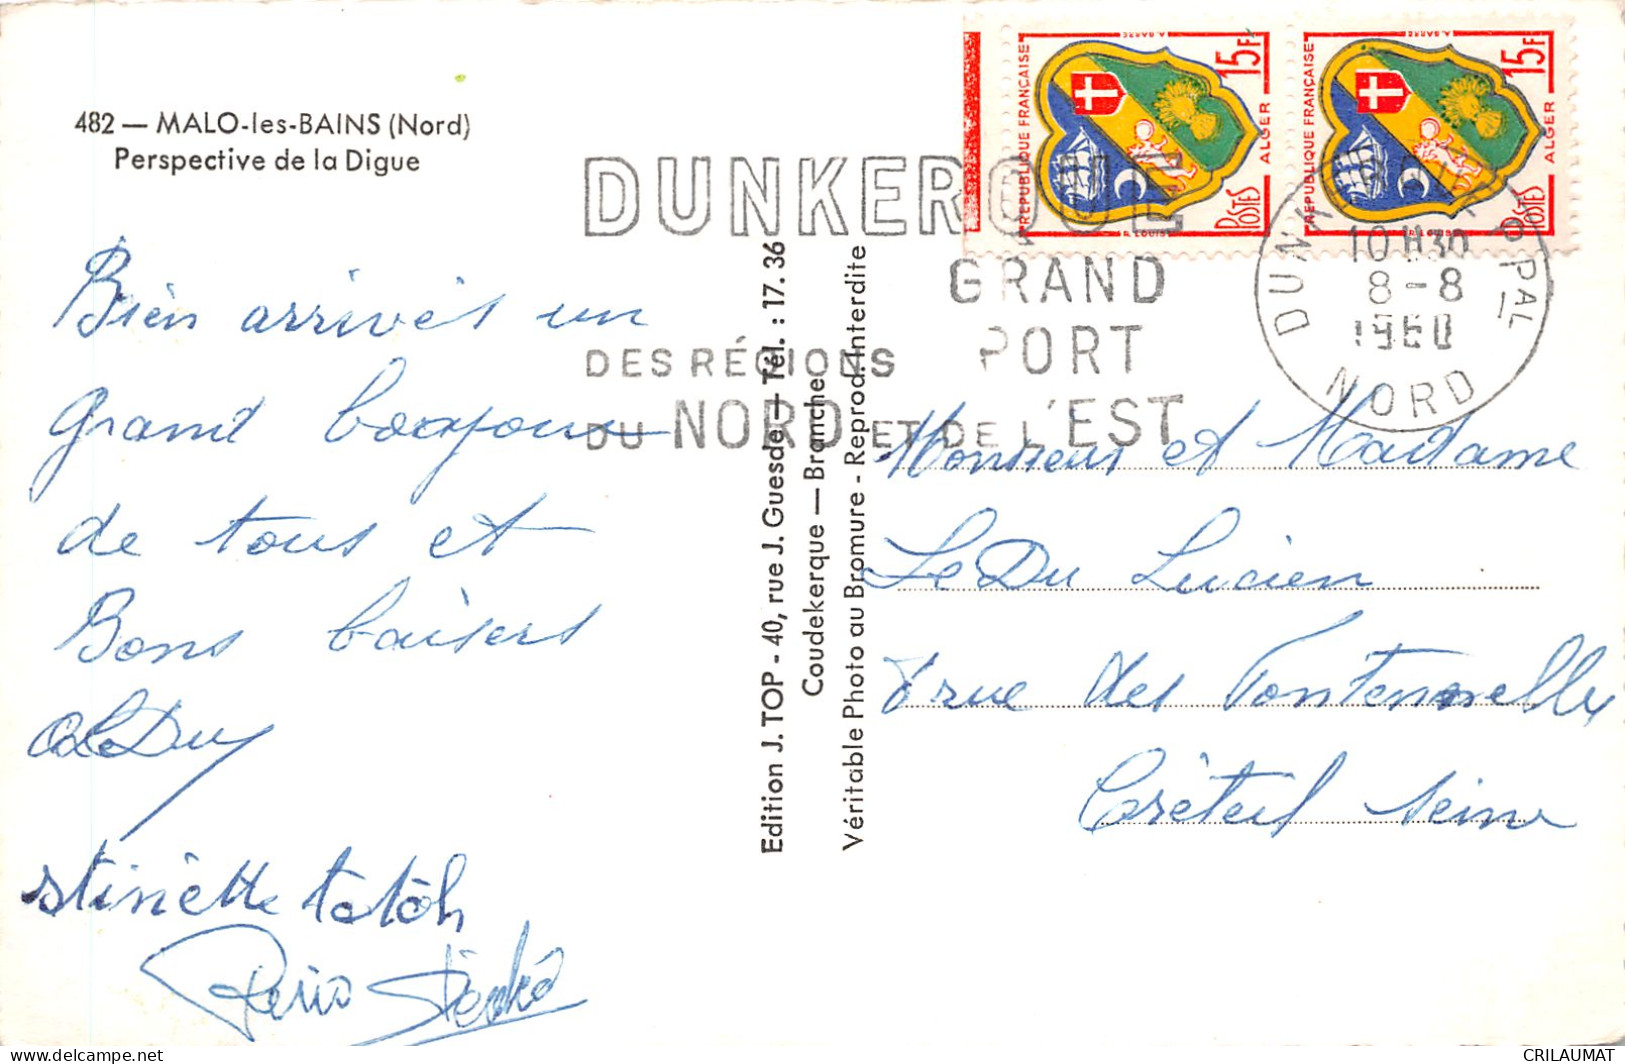 482 — MALO-les-BAINS (Nord)
Perspective de la Digue
Bien arrivés un
grand bonjour
de tous et
Bons baisers
LeDu
Edition J. TOP - 40, rue J. Guesde — Tél. : 17.36
Coudekerque — Branche
Véritable Photo au Bromure - Reprod. Interdite
DUNKERQUE
GRAND
PORT
DES RÉGIONS
DU NORD ET DE L'EST
RÉPUBLIQUE FRANÇAISE
15F
ALGER
POSTES
R. LOUIS
A. BARRE
RÉPUBLIQUE FRANÇAISE
15F
ALGER
POSTES
R. LOUIS
A. BARRE
DUNKERQUE PPAL
10H30
8-8
1960
NORD
Monsieur et Madame
Le Du Lucien
rue des Fontenelles
Créteil Seine
CRILAUMAT